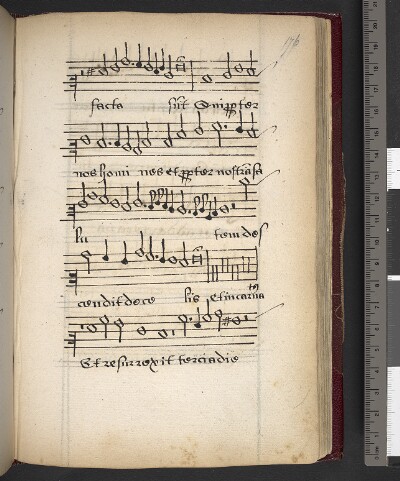 176
facta sūt Qui ꝓpter
nos homi nes et ꝓpter nostrā sa
lu tem des
cendit de ce lis et incarna
tꝯ
Et resurrexit tercia die